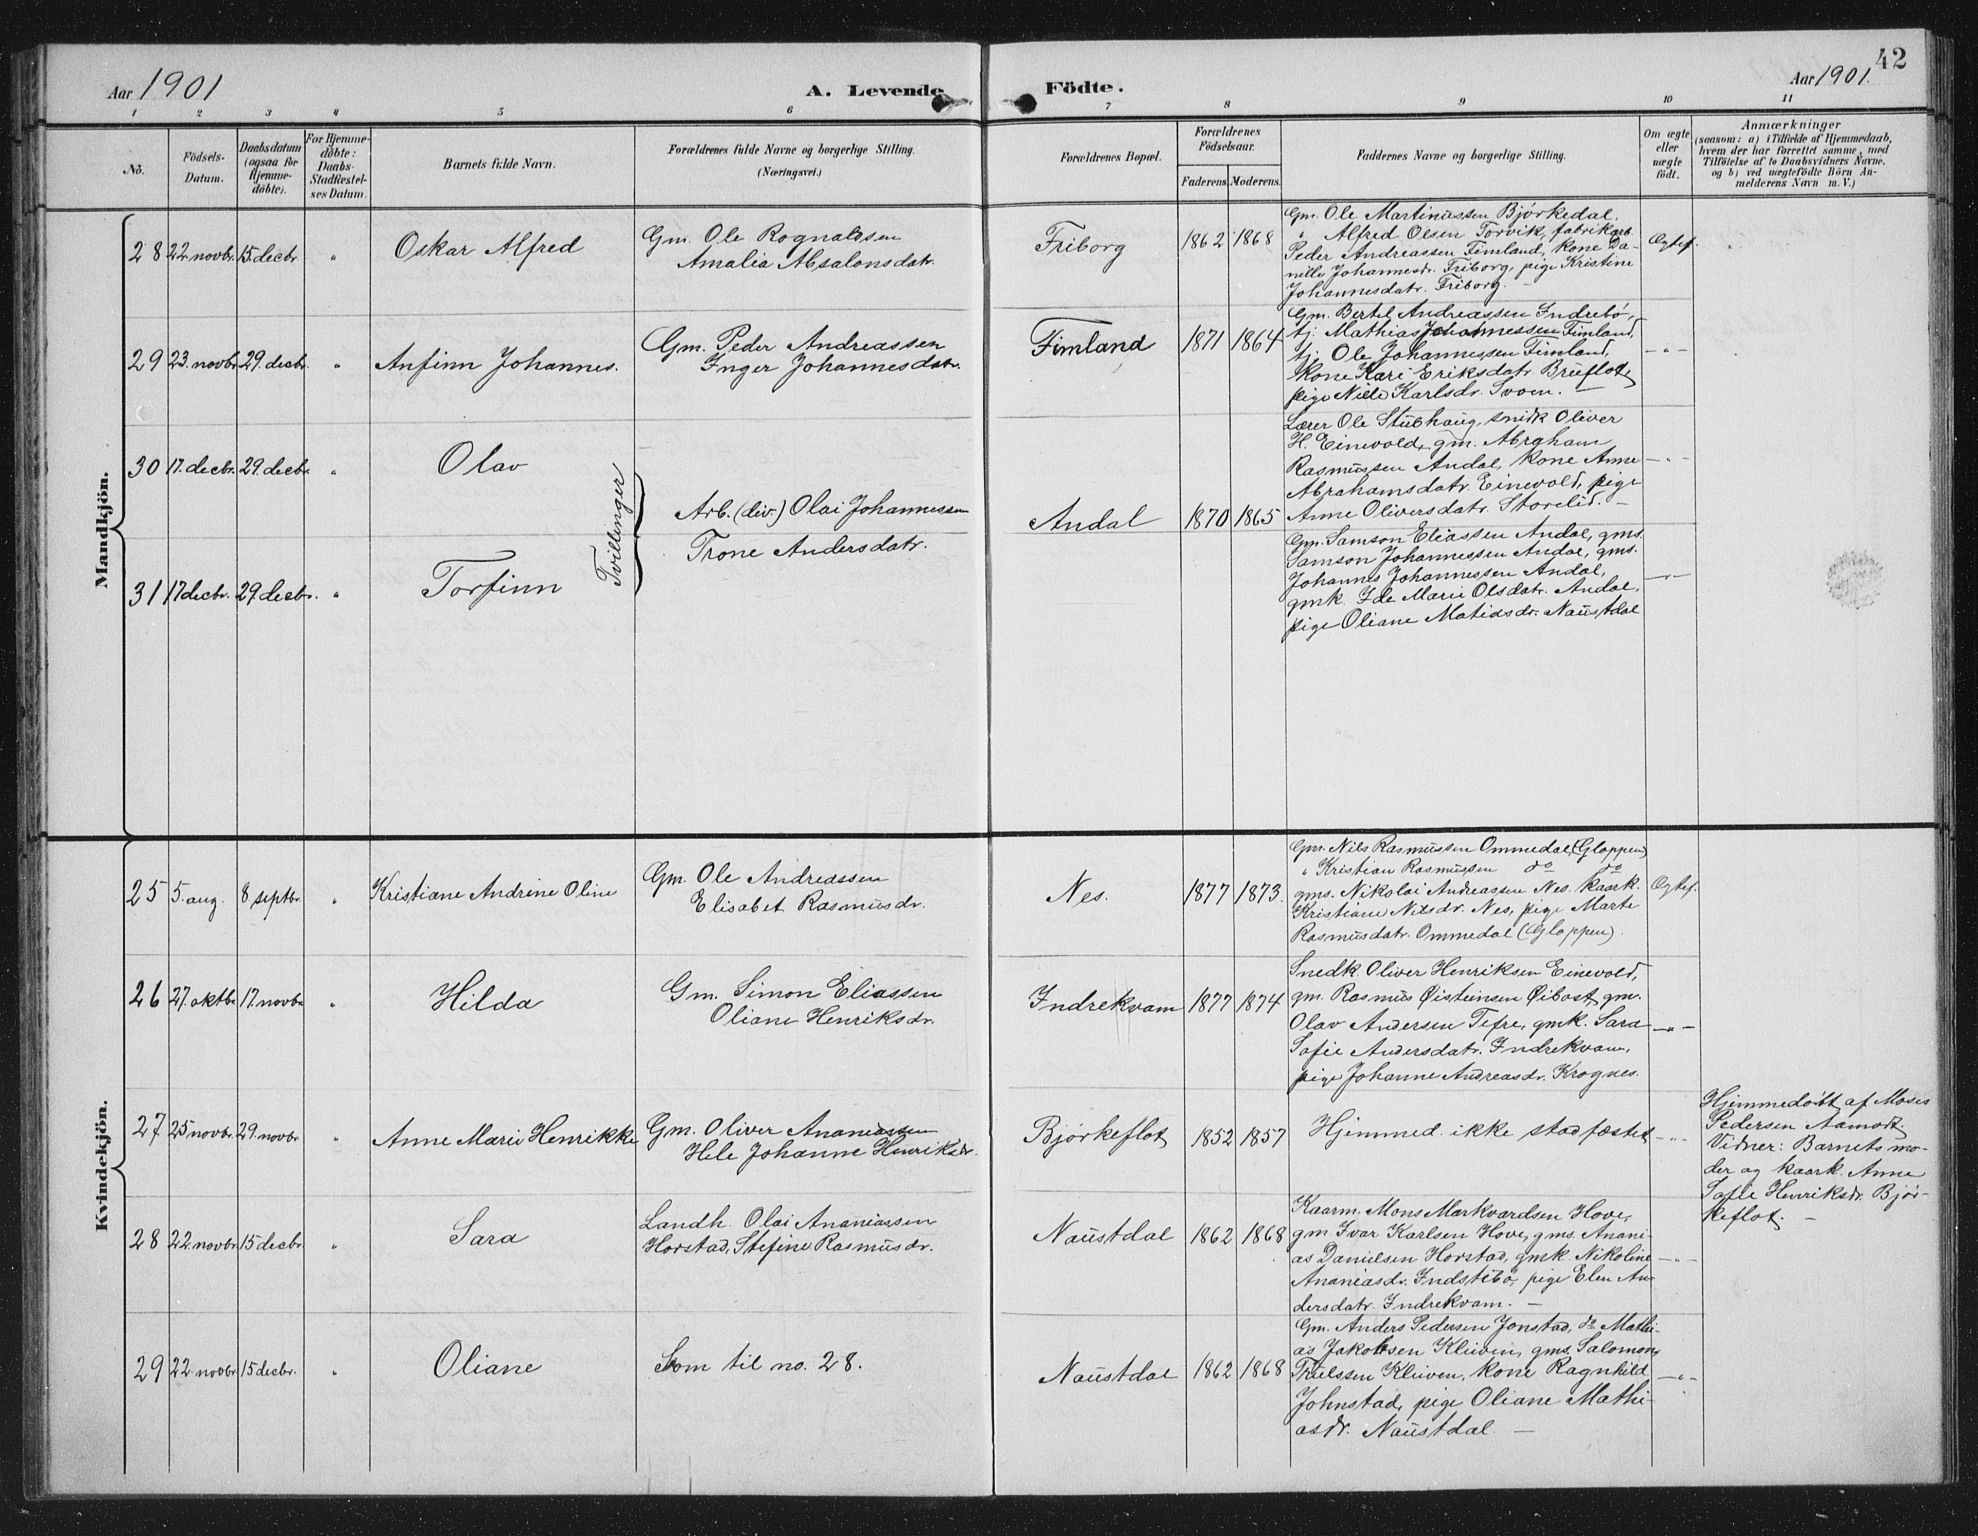 42
Aar 1901
A. Levende
Födte.
Aar 1901.
1 2 3 4 5 6 7 8 9 10 11
No.
Födsels-
Datum.
Daabsdatum
(ogsaa for
Hjemme-
döbte).
For Hjemme-
döbte:
Daabs-
Stadfæstel-
ses Datum.
Barnets fulde Navn.
Forældrenes fulde Navne og borgerlige Stilling.
(Næringsvei.)
Forældrenes Bopæl.
Forældrenes
Födselsaar.
Faderens. Moderens.
Faddernes Navne og borgerlige Stilling.
Om ægte
eller
uægte
födt.
Anmærkninger
(saasom: a) i Tilfælde af Hjemmedaab,
hvem der har forrettet samme, med
Tilföielse af to Daabsvidners Navne,
og b) ved uægtefödte Börn An-
melderens Navn m. V.)
Mandkjön.
28 22 novbr. 15. decbr. "
Oskar Alfred
Gm. Ole Rognaldsen
Amalia Absalonsdatr.
Friborg
1862 1868
Gm. Ole Martinussen Bjórkedal.
" Alfred Olsen Torvik, fabrikarb.
Peder Andreassen Fimland, kone Da-
nille Johannesdr. Friborg, pige Kristine
Johannesdatr. Friborg. —
Ægtef.
29 23. novbr. 29. decbr. "
Anfinn Johannes.
Gm. Peder Andreassen
Inger Johannesdatr.
Fimland
1871 1864
Gm. Bertel Andreassen Indrebó,
tj. Mathias Johannessen Fimland,
tj. Ole Johannessen Fimland,
kone Kari Eriksdatr. Bruflot,
pige Karlsdr. —
— " —
30 17. decbr. 29. decbr. "
Olav
Lærer Ole Stubhaug, snidk Oliver
H. Einevold, gm. Abraham
Rasmussen Andal, kone Anne
Abrahamsdatr. Einevold, pige
Anne Oliversdatr. Storelid. —
— " —
Tvillinger
Arb. (div.) Olai Johannessen
Trone Andersdatr.
Andal
1870 1865
31 17 decbr. 29 decbr. "
Torfinn
Gm. Samson Eliassen Andal, gms.
Samson Johannessen Andal, gms.
Johannes Johannessen Andal,
gmk. Ide Marie Olsdatr. Andal,
pige Oliane Matiasdr. Naustdal
— " —
Kvindekjön.
25 5. aug. 8 septbr. "
Kristiane Andrine Oline
Gm. Ole Andreassen
Elisabet Rasmusdr.
Nes.
1877 1873.
Gm. Nils Rasmussen Ommedal (Gloppen)
" Kristian Rasmussen do do
gms. Nikolai Andreassen Nes, kaark.
Kristiane Nilsdr. Nes, pige Marte
Rasmusdatr. Ommedal (Gloppen).
Ægtef.
26 27. oktbr. 17. novbr. "
Hilda
Gm. Simon Eliassen
Oliane Henriksdr.
Indrekvam
1877 1874
Snedk. Oliver Henriksen Einevold,
gm. Rasmus Øisteinsen Øibost, gm.
Olav Andersen Tefre, gmk. Sara
Sofie Andersdatr. Indrekvam,
pige Johanne Andreasdr. Krognes.
— " —
27 25 novbr. 29. novbr. "
Anne Marie Henrikke
Gm. Oliver Ananiassen
Hele Johanne Henriksdr.
Bjórkeflot
1852 1857
Hjemmed. ikke stadfæstet
— " —
Hjemmedóbt af Moses
Pedersen Aamot.
Vidner: Barnets mo-
der og kaark. Anne
Sofie Henriksdr. Bjór-
keflot. —
28 22. novbr. 15 decbr. "
Sara
Landh. Olai Ananiassen
Horstad, Stefine Rasmusdr.
Naustdal
1862 1868
Kaarm. Mons Markvardsen Hove,
gm. Ivar Karlsen Hove, gms. Anani-
as Danielsen Horstad, gmk. Nikoline
Ananiasdr. Indstebó, pige Elen An-
dersdatr. Indrekvam. —
— " —
29 22 novbr. 15 decbr. "
Oliane
Som til no. 28.
Naustdal
1862 1868
Gm. Anders Pedersen Jonstad, do Mathi-
as Jakobsen Kleiven, gms. Salomon
Trulssen Kleiven, kone Ragnhild
Johnstad, pige Oliane Mathi-
asdr. Naustdal —
— " —